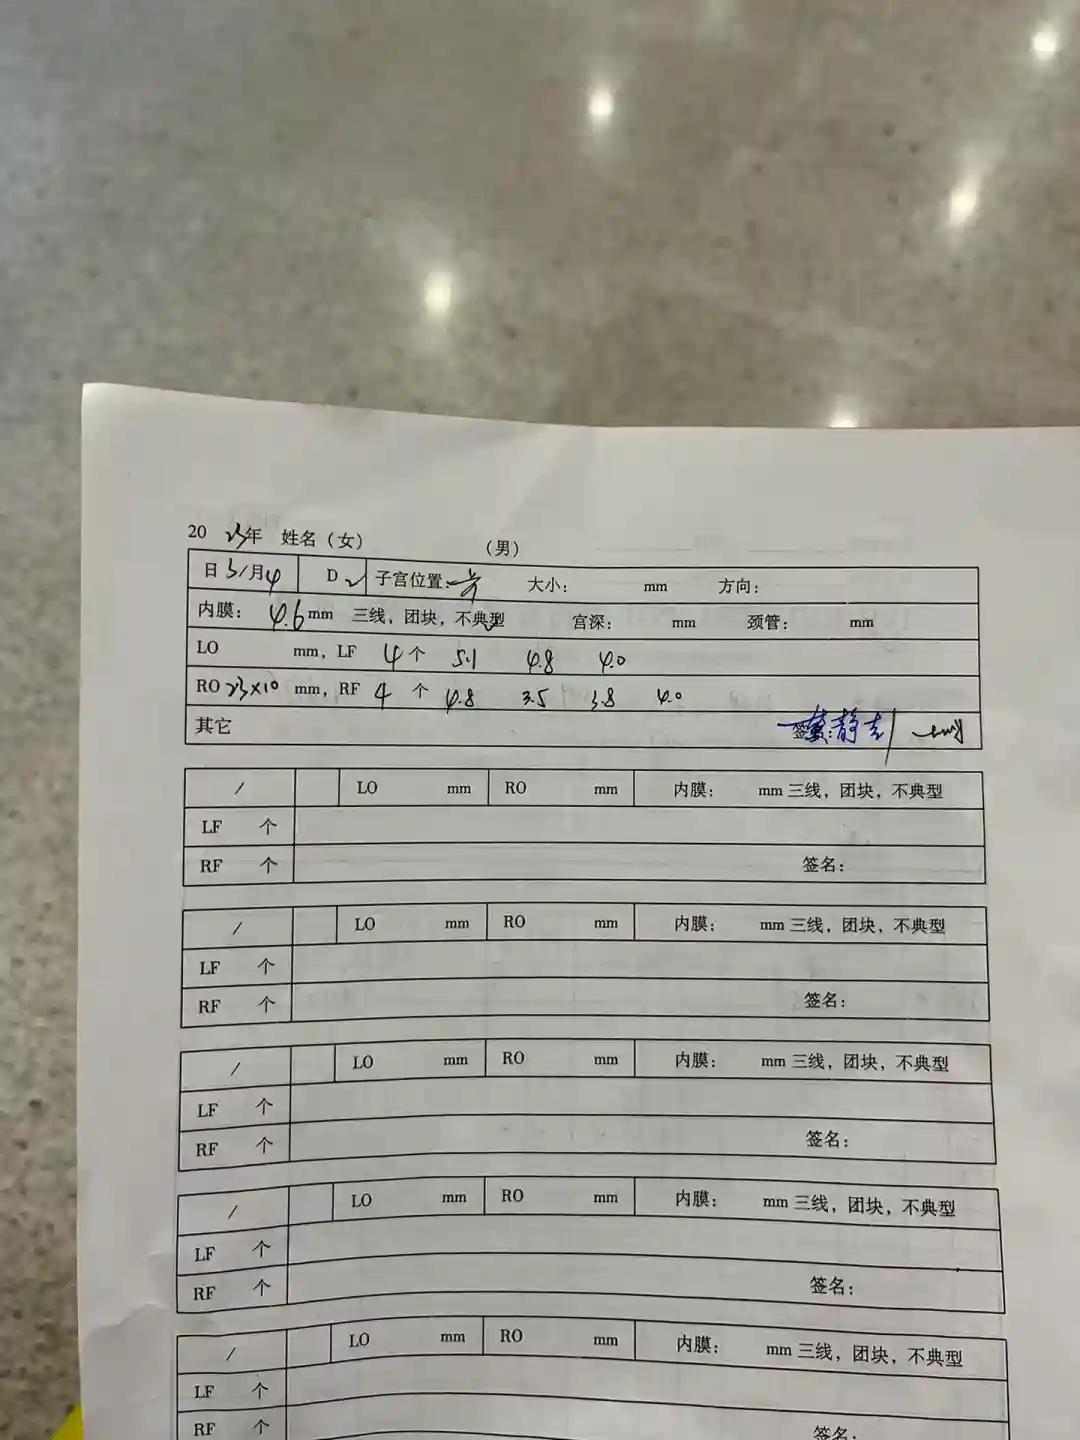 20 23年 姓名（女） （男）
日 31/月4 D2 子宫位置: 前 大小: mm 方向:
内膜: 4.6mm 三线，团块，不典型 宫深: mm 颈管: mm
LO mm，LF 4个 5.1 4.8 4.0
RO 23×10 mm，RF 4 个 4.8 3.5 3.8 4.0
其它
/ LO mm RO mm 内膜: mm 三线，团块，不典型
LF 个
RF 个 签名:
/ LO mm RO mm 内膜: mm 三线，团块，不典型
LF 个
RF 个 签名:
/ LO mm RO mm 内膜: mm 三线，团块，不典型
LF 个
RF 个 签名:
/ LO mm RO mm 内膜: mm 三线，团块，不典型
LF 个
RF 个 签名:
/ LO mm RO mm 内膜: mm 三线，团块，不典型
LF 个
RF 个 签名: